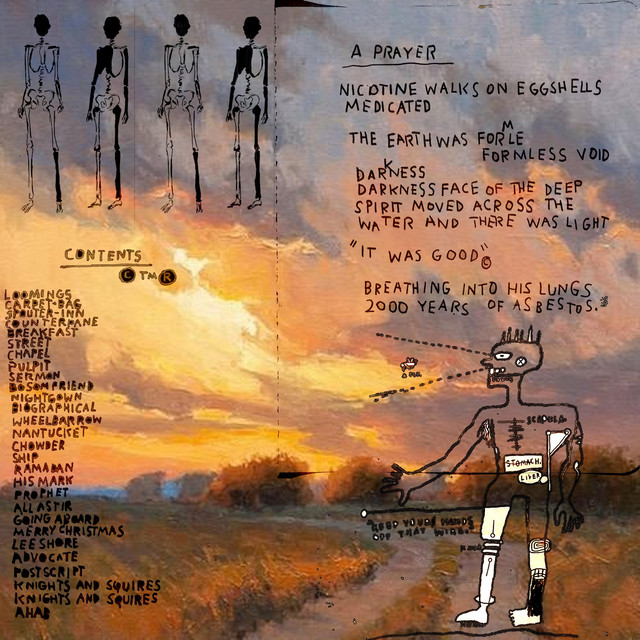 A PRAYER
NICOTINE WALKS ON EGGSHELLS
MEDICATED
M
THE EARTH WAS FORLE
FORMLESS VOID
DARKNESS
DARKNESS FACE OF THE DEEP
SPIRIT MOVED ACROSS THE
WATER AND THERE WAS LIGHT
"IT WAS GOOD"©
BREATHING INTO HIS LUNGS
2000 YEARS OF ASBESTOS.
CONTENTS
© TM ®
LOOMINGS
CARPET-BAG
SPOUTER-INN
COUNTERPANE
BREAKFAST
STREET
CHAPEL
PULPIT
SERMON
BOSOM FRIEND
NIGHTGOWN
BIOGRAPHICAL
WHEELBARROW
NANTUCKET
CHOWDER
SHIP
RAMADAN
HIS MARK
PROPHET
ALL ASTIR
GOING ABOARD
MERRY CHRISTMAS
LEE SHORE
ADVOCATE
POSTSCRIPT
KNIGHTS AND SQUIRES
KNIGHTS AND SQUIRES
AHAB
STOMACH.
LIVER
"KEEP YOUR HANDS
OFF THAT WIRE."